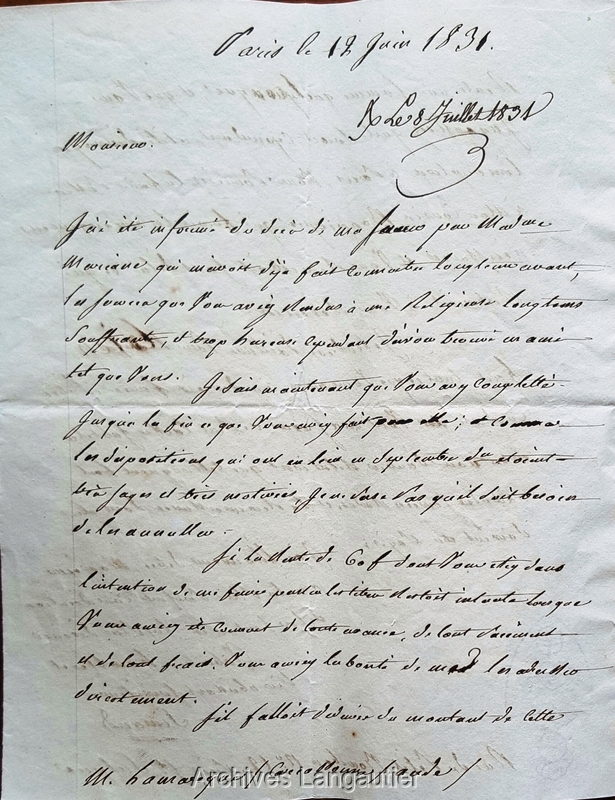 Paris le 12 Juin 1831.
Le 8 Juillet 1831
Monsieur.
J'ai été informé du décès de ma par Madame
Mariane qui m'avoit déja fait connoitre longtems avant,
les que Vous aviez rendus à une Religieuse longtems
Souffrante, et trop heureuse cependant d'avoir trouvé un ami
tel que Vous. Je sais maintenant que Vous avez completté
jusqu'à la fin ce que Vous aviez fait pour elle; et comme
les dispositions qui ont eu lieu en Septembre étoient
très sages et très motivées, je ne pense pas qu'il soit besoin
de les annuller.
Si la Rente de 60f dont Vous étiez dans
l'intention de me faire passer les titres restoit intacte lorsque
Vous auriez été couvert de toute avance, de tout
et de tout frais. Vous auriez la bonté de les adresser
directement.
S'il falloit du montant de cette
M. /
Archives Langautier